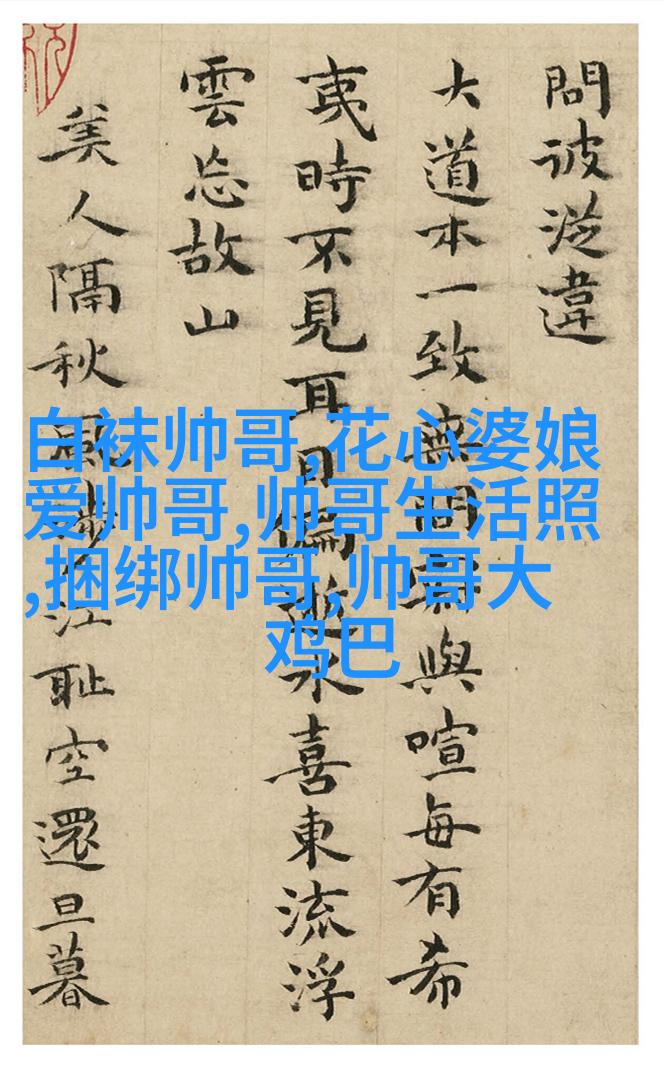 問彼從違
大道本一致無問與喧每有希
夷時不見耳目偏水喜東流浮
雲忘故山
美人隔秋風涉江耻空還旦暮
白袜帅哥,花心婆娘
爱帅哥,帅哥生活照
,捆绑帅哥,帅哥大
鸡巴